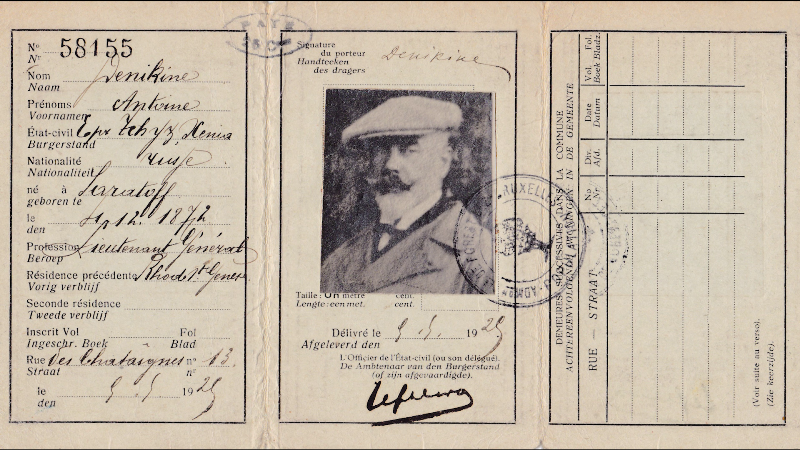 Nº
Nr
58155
Nom
Naam
Denikine
Prénoms
Voornamen
Antoine
État-civil
Burgerstand
Nationalité
Nationaliteit
russe
né à
geboren te
Saratoff
le
den
1872
Profession
Beroep
Lieutenant Général
Résidence précédente
Vorig verblijf
Rhode St Genèse
Seconde résidence
Tweede verblijf
Inscrit Vol Fol
Ingeschr. Boek Blad
Rue des Chataignes nº 13
Straat nr
le
den
1925
PAYÉ
Signature
du porteur
Handteeken
des dragers
Denikine
Taille: Un mètre cent.
Lengte: een met. cent.
Délivré le
Afgeleverd den
1925
L'Officier de l'État-civil (ou son délégué).
De Ambtenaar van den Burgerstand
(of zijn afgevaardigde).
DEMEURES SUCCESSIVES DANS LA COMMUNE
ACHTEREENVOLGENDE WONINGEN IN DE GEMEENTE
RUE — STRAAT
No
Nr
Div.
Afd.
Date
Datum
Vol. Fol.
Boek Bladz.
(Voir suite au verso).
(Zie keerzijde).